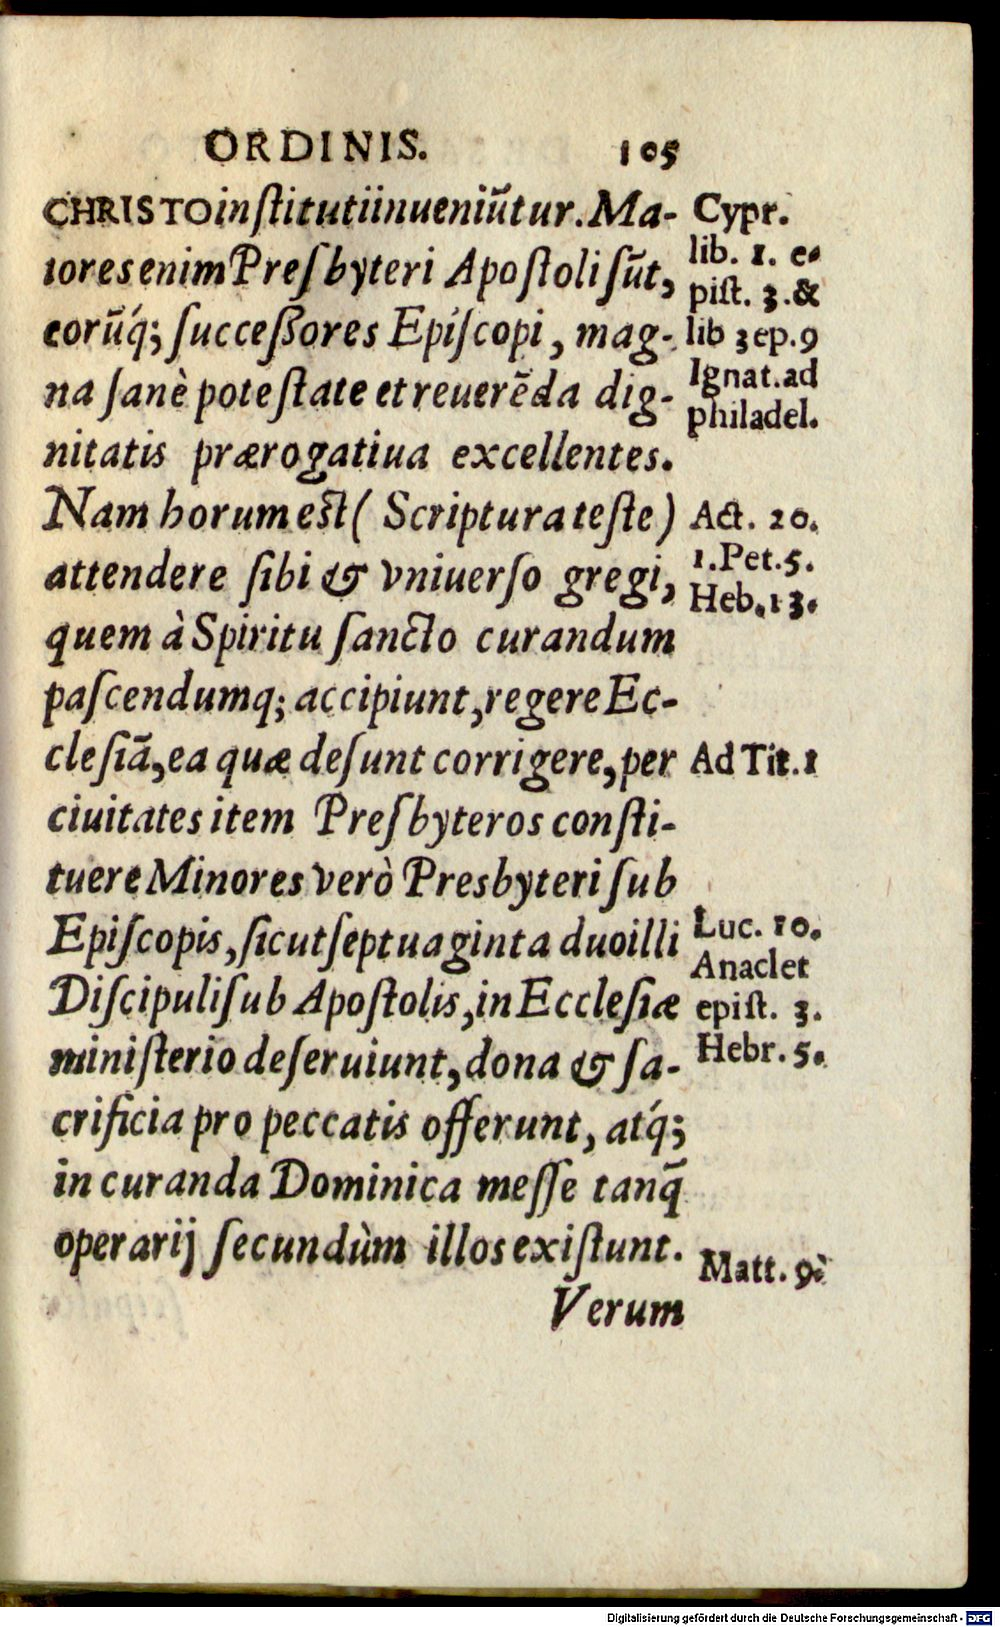 ORDINIS. 105
CHRISTO inſtituti inueniūtur. Ma-
iores enim Preſbyteri Apoſtoli ſūt,
eorūq́; ſucceſſores Epiſcopi, mag-
na ſanè poteſtate et reuerēda dig-
nitatis prærogatiua excellentes.
Nam horum est ( Scriptura teſte )
attendere ſibi & vniuerſo gregi,
quem à Spiritu ſancto curandum
paſcendumq; accipiunt, regere Ec-
cleſiā, ea quæ deſunt corrigere, per
ciuitates item Preſbyteros conſti-
tuere Minores verò Presbyteri ſub
Epiſcopis, ſicut ſeptuaginta duo illi
Diſcipuli ſub Apoſtolis, in Eccleſiæ
miniſterio deſeruiunt, dona & ſa-
crificia pro peccatis offerunt, atq́;
in curanda Dominica meſſe tanq̄
operarij ſecundùm illos exiſtunt.
Verum
Cypr.
lib. 1. e-
piſt. 3. &
lib 3 ep. 9
Ignat. ad
philadel.
Act. 20.
1. Pet. 5.
Heb. 13.
Ad Tit. 1
Luc. 10.
Anaclet
epiſt. 3.
Hebr. 5.
Matt. 9.
Digitalisierung gefördert durch die Deutsche Forschungsgemeinschaft - DFG